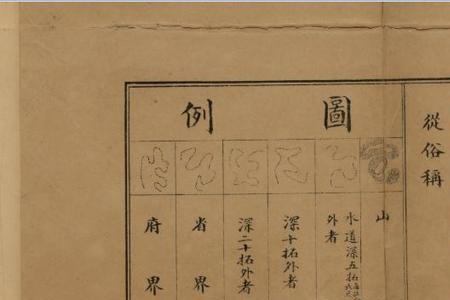 從俗稱
圖例
山
水道深五拓
外者
深十拓外者
深二十拓外者
省界
府界